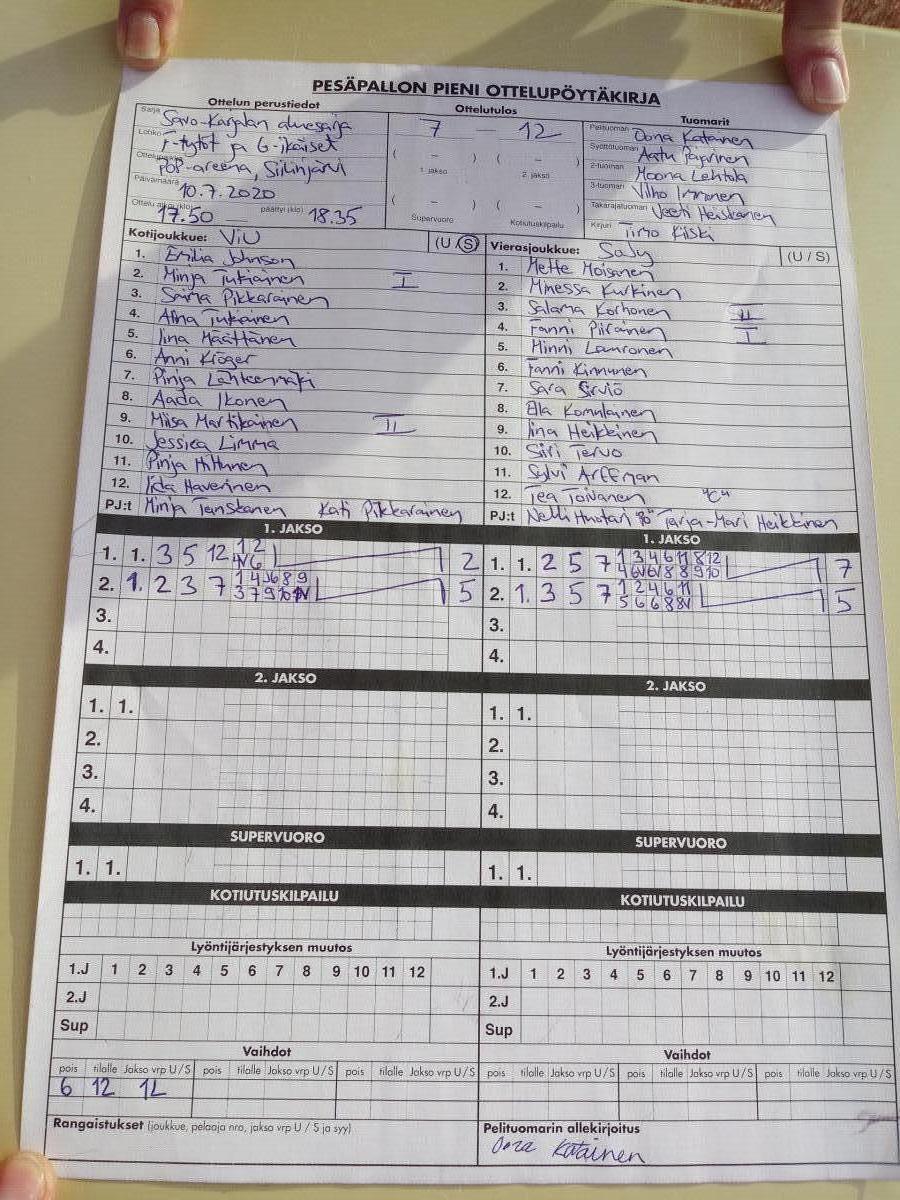 PESÄPALLON PIENI OTTELUPÖYTÄKIRJA
Ottelun perustiedot
Ottelutulos
Tuomarit
Sarja Savo-Karjalan aluesarja
Lohko F-tytöt ja G-ikäiset
Ottelupaikka POP-areena, Siilinjärvi
Päivämäärä 10.7.2020
Ottelu alkoi (klo) 17.50 päättyi (klo) 18.35
7 – 12
( – ) ( – )
1. jakso 2. jakso
( – ) ( – )
Supervuoro Kotiutuskilpailu
Pelituomari Oona Katainen
Syöttötuomari Aatu Pajarinen
2-tuomari Moona Lehtola
3-tuomari Vilho Immonen
Takarajatuomari Veeti Heiskanen
Kirjuri Timo Kiiski
Kotijoukkue: ViU (U S)
1. Emilia Johnson
2. Minja Tukiainen I
3. Saima Pikkarainen
4. Alina Tukiainen
5. Iina Määttänen
6. Anni Kröger
7. Pinja Lähteenmäki
8. Aada Ikonen
9. Miisa Martikainen II
10. Jessica Limma
11. Pinja Hiltunen
12. Iida Haverinen
PJ:t Minja Tanskanen Kati Pikkarainen
Vierasjoukkue: SaJy (U / S)
1. Mette Moisanen
2. Minessa Kurkinen
3. Salama Korhonen II
4. Fanni Piirainen I
5. Minni Lauronen
6. Fanni Kinnunen
7. Sara Sirviö
8. Ella Komulainen
9. Iina Heikkinen
10. Siiri Tervo
11. Sylvi Arffman
12. Tea Toivanen "C"
PJ:t Nelli Huotari Tarja-Mari Heikkinen
1. JAKSO
1. 1. 3 5 12 2
2. 1. 2 3 7 5
3.
4.
1. JAKSO
1. 1. 2 5 7 7
2. 1. 3 5 7 5
3.
4.
2. JAKSO
1. 1.
2.
3.
4.
2. JAKSO
1. 1.
2.
3.
4.
SUPERVUORO
1. 1.
SUPERVUORO
1. 1.
KOTIUTUSKILPAILU
KOTIUTUSKILPAILU
Lyöntijärjestyksen muutos
1.J 1 2 3 4 5 6 7 8 9 10 11 12
2.J
Sup
Lyöntijärjestyksen muutos
1.J 1 2 3 4 5 6 7 8 9 10 11 12
2.J
Sup
Vaihdot
pois tilalle Jakso vrp U / S pois tilalle Jakso vrp U / S pois tilalle Jakso vrp U / S
6 12 1L
Vaihdot
pois tilalle Jakso vrp U / S pois tilalle Jakso vrp U / S pois tilalle Jakso vrp U / S
Rangaistukset (joukkue, pelaaja nro, jakso vrp U / S ja syy)
Pelituomarin allekirjoitus
Oona Katainen